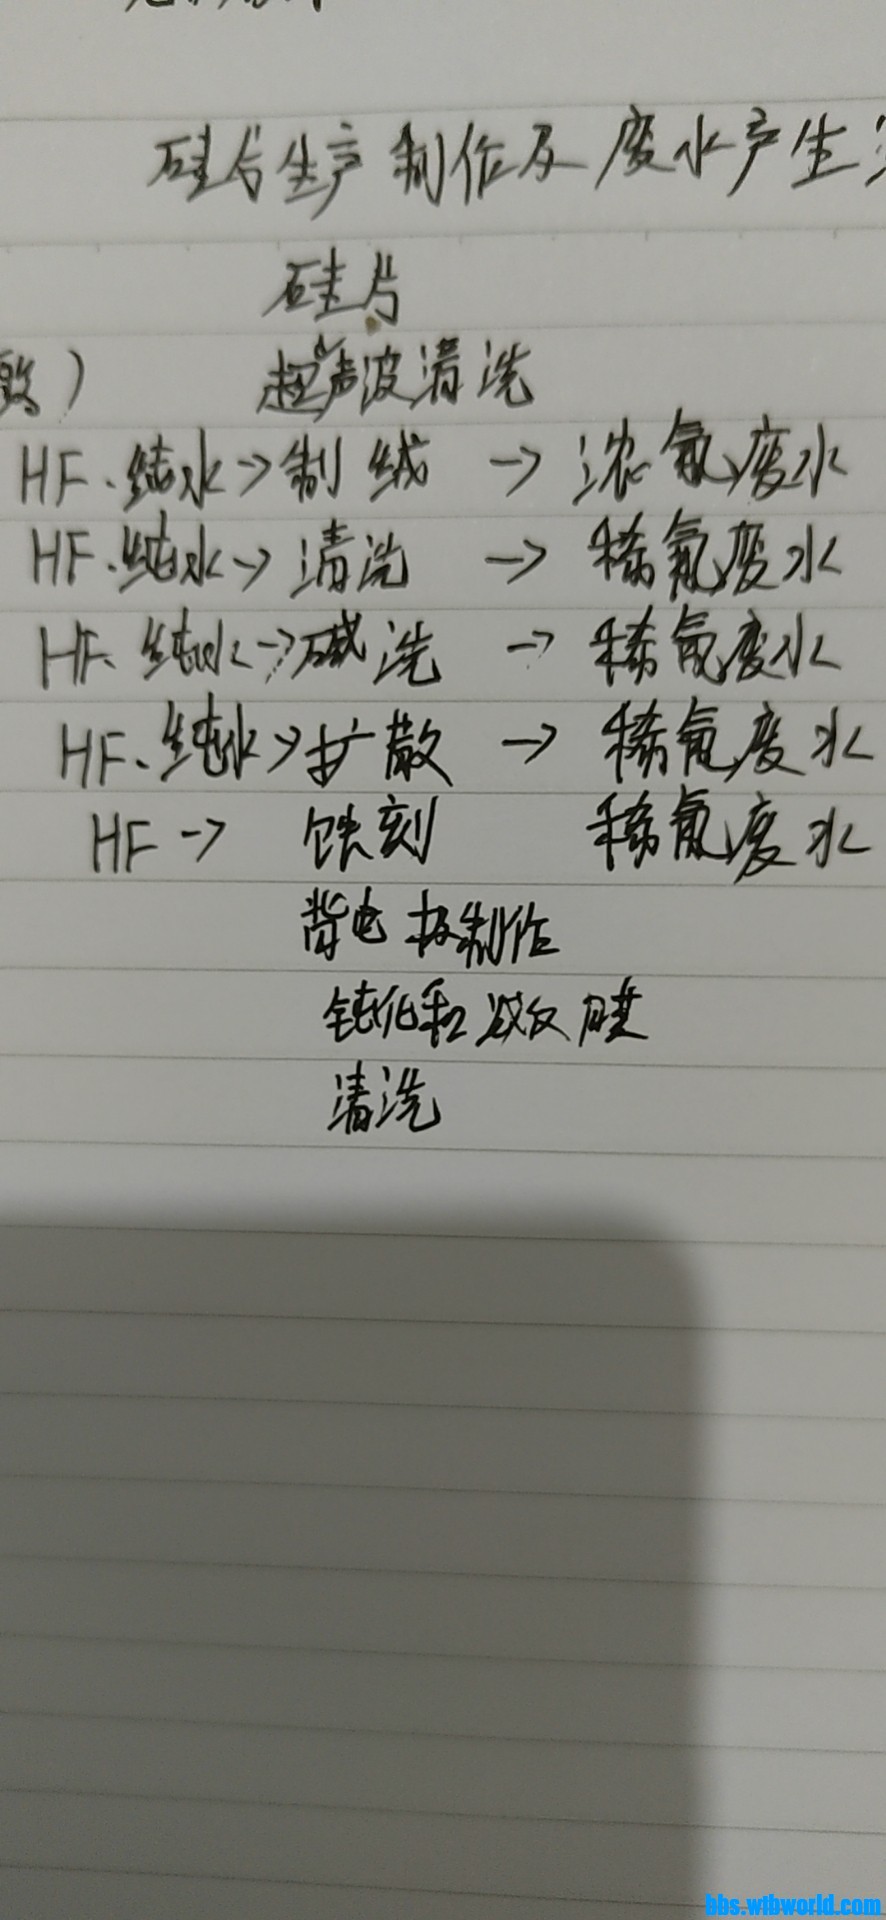 硅片生产制作及废水产生
硅片
致） 超声波清洗
HF、纯水→制绒 → 浓氟废水
HF、纯水→清洗 → 稀氟废水
HF、纯水→碱洗 → 稀氟废水
HF、纯水→扩散 → 稀氟废水
HF→ 蚀刻 稀氟废水
背电极制作
钝化和减反膜
清洗
bbs.wtbworld.com